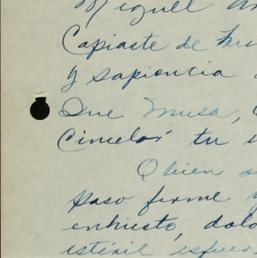 Miguel An
Capiaste de
y sapiencia
Que Musa,
Cincelar tu
Quien
Paso firme y
enhiesto, dolo
estéril esfuer